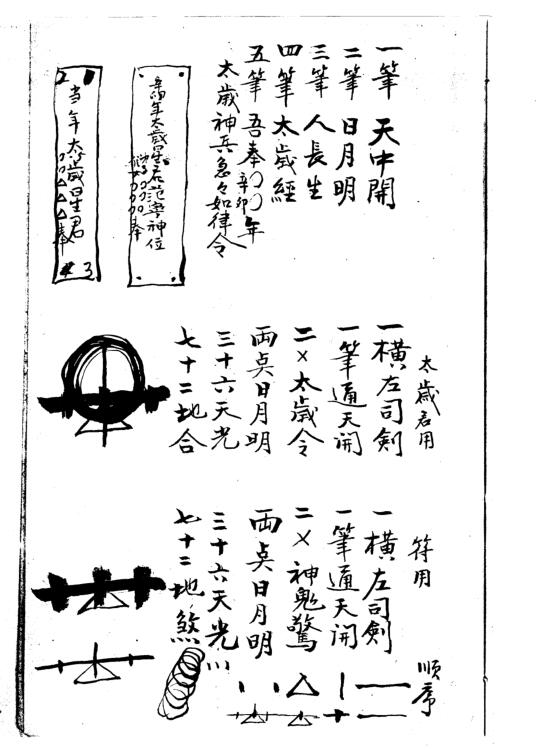 一筆 天中開
二筆 日月明
三筆 人長生
四筆 太歲經
五筆 吾奉〇〇年
辛卯
太歲神兵急々如律令
辛卯年太歲星君范寧神位
奉
当年太歲星君
奉
2
3
太歲君用
一橫左司剣
一筆通天開
二×太歲令
両点日月明
三十六天光
七十二地合
符用
一橫左司剣
一筆通天開
二×神鬼驚
両点日月明
三十六天光
七十二地煞
順序